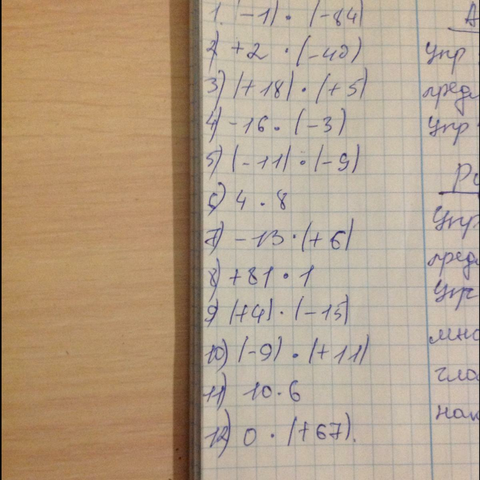 1. (-1) · (-84)
2) +2 · (-40)
3) (+18) · (+5)
4) -16 · (-3)
5) (-11) · (-9)
6) 4 · 8
7) -13 · (+6)
8) +81 · 1
9) (+4) · (-15)
10) (-9) · (+11)
11) 10 · 6
12) 0 · (+67).
А
Упр
пред
Упр
Ру
Упр
пред
Упр
мно
гла
нак